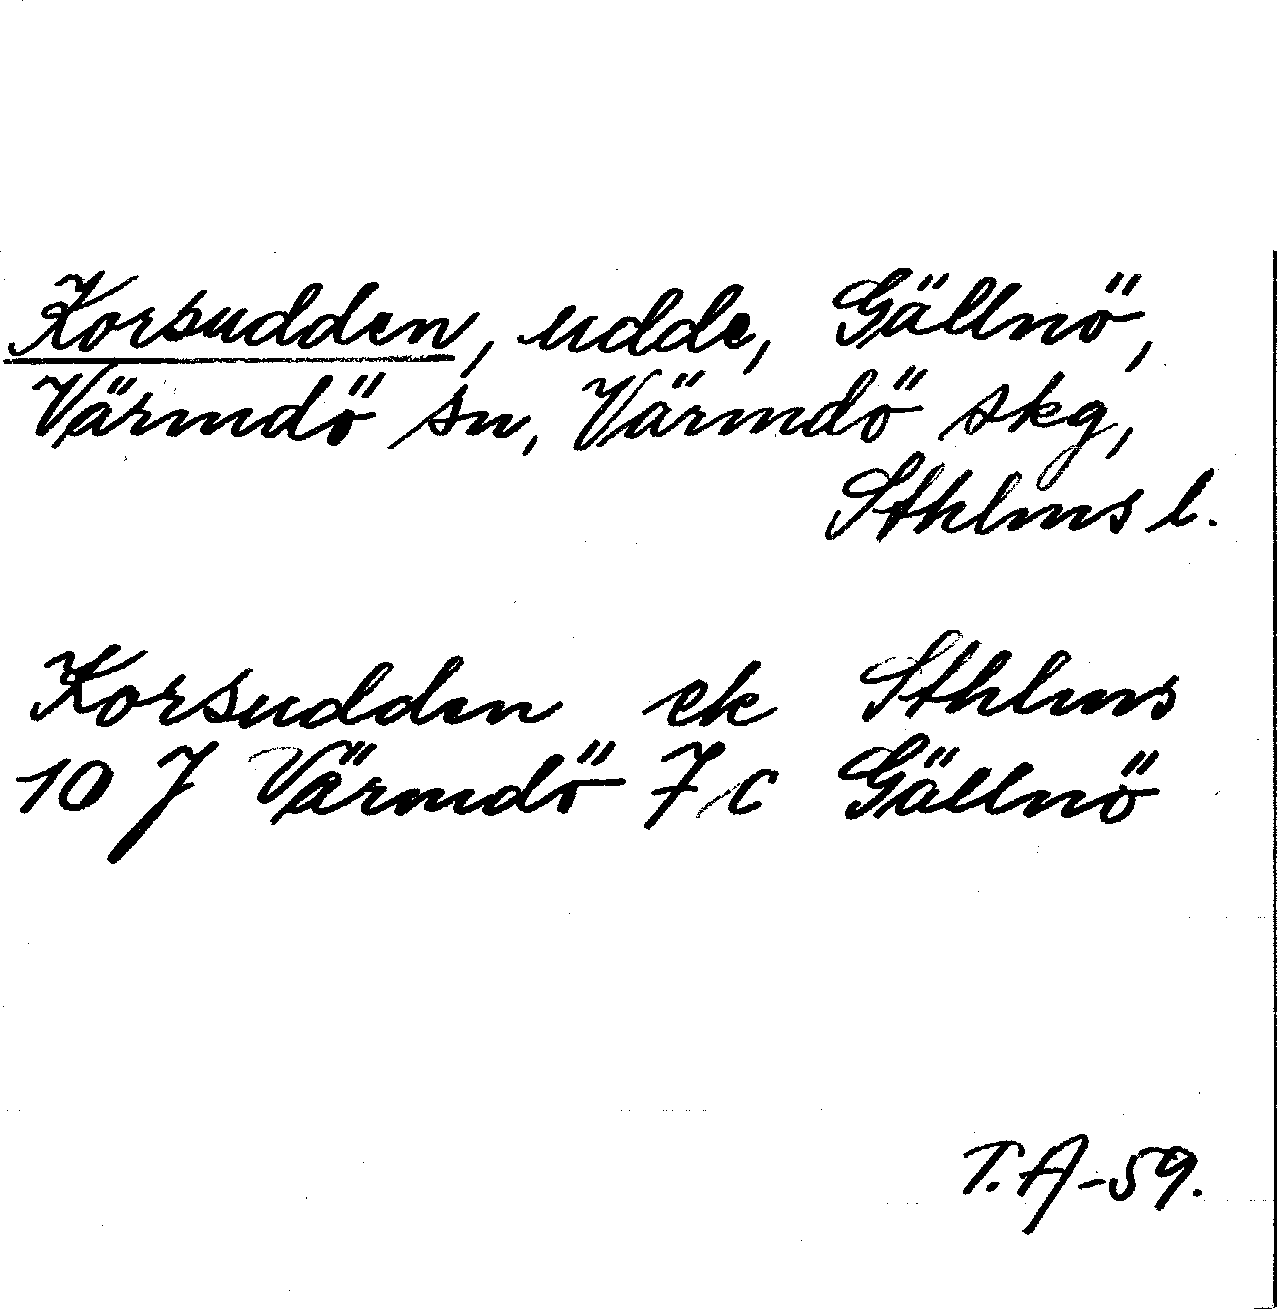 Korsudden, udde, Gällnö,
Värmdö sn, Värmdö skg,
Sthlms l.
Korsudden ek Sthlms
10 J Värmdö 7 c Gällnö
T.A-59.